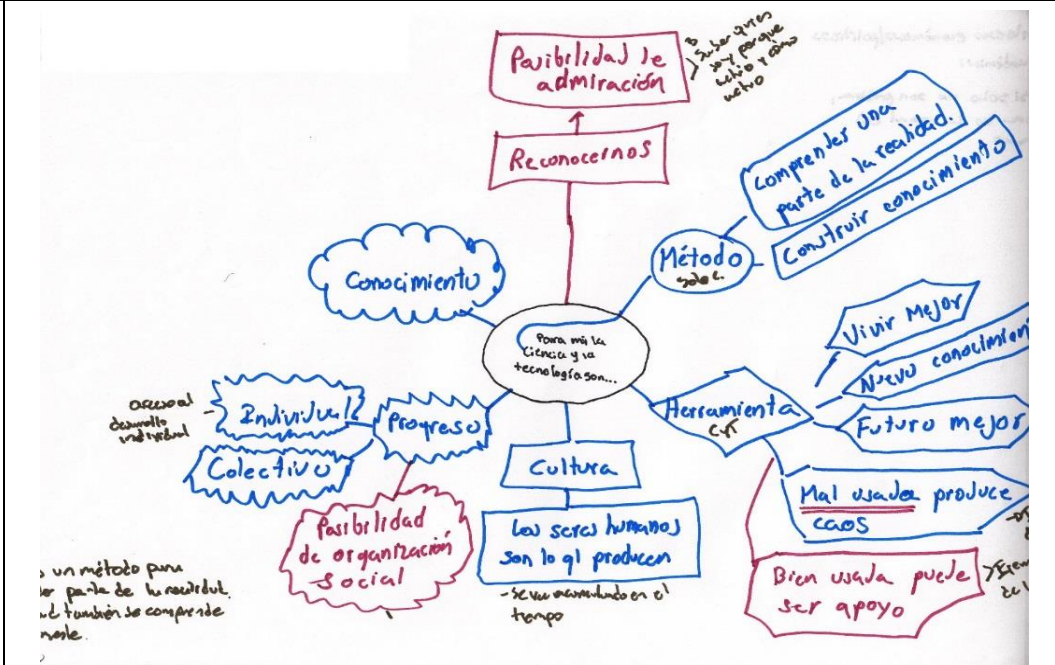 Posibilidad de
admiración
soy y porque
Reconocernos
Comprender una
parte de la realidad.
Construir conocimiento
Método
solo c.
Conocimiento
Para mi la
Ciencia y la
tecnología son...
Vivir Mejor
Nuevo conocimien
Futuro mejor
Herramienta
CyT
Mal usada produce
caos
Bien usada puede
ser apoyo
acceso al
desarrollo
individual
Individual
Colectivo
Progreso
Posibilidad
de organización
social
Cultura
Los seres humanos
son lo ql producen
- se va acumulando en el
tiempo
un método para
parte de la realidad.
también se comprende